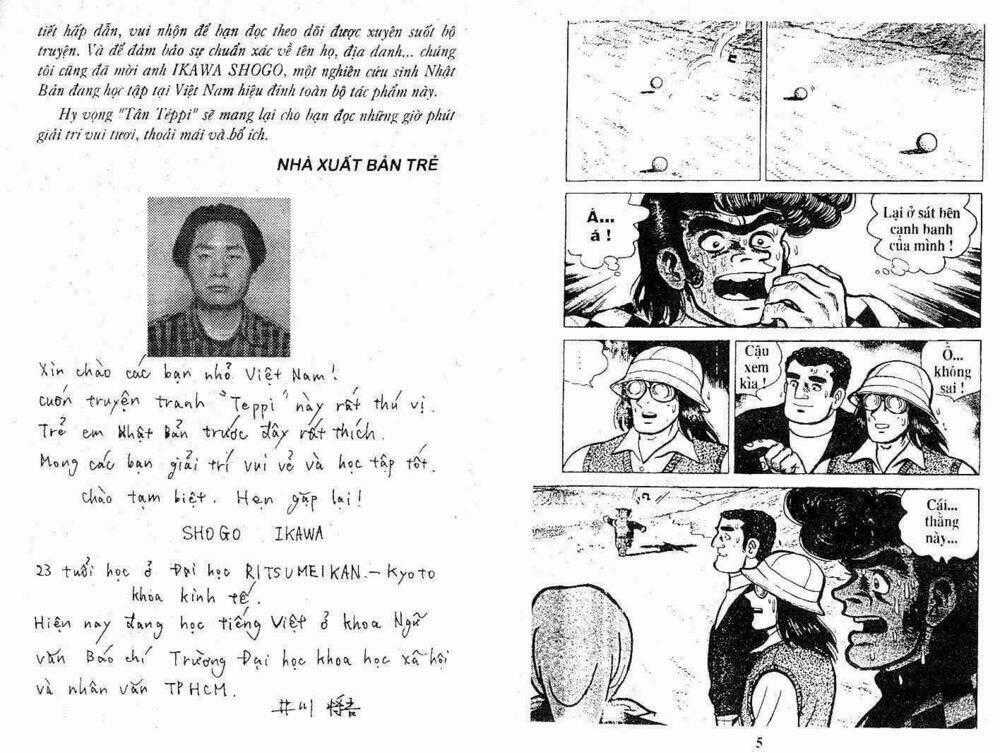 tiết hấp dẫn, vui nhộn để bạn đọc theo dõi được xuyên suốt bộ
truyện. Và để đảm bảo sự chuẩn xác về tên họ, địa danh... chúng
tôi cũng đã mời anh IKAWA SHOGO, một nghiên cứu sinh Nhật
Bản đang học tập tại Việt Nam hiệu đính toàn bộ tác phẩm này.
Hy vọng "Tân Têppi" sẽ mang lại cho bạn đọc những giờ phút
giải trí vui tươi, thoải mái và bổ ích.
NHÀ XUẤT BẢN TRẺ
Xin chào các bạn nhỏ Việt Nam!
cuốn truyện tranh "Teppi" này rất thú vị.
Trẻ em Nhật Bản trước đây rất thích.
Mong các bạn giải trí vui vẻ và học tập tốt.
chào tạm biệt. Hẹn gặp lại!
SHOGO IKAWA
23 tuổi học ở Đại học RITSUMEIKAN - Kyoto
khoa kinh tế.
Hiện nay đang học tiếng Việt ở khoa Ngữ
văn Báo chí Trường Đại học khoa học xã hội
và nhân văn TPHCM.
井川
Á...
á!
Lại ở sát bên
cạnh banh
của mình!
...
Cậu
xem
kìa!
Ồ...
không
sai!
Cái...
thằng
này...
5